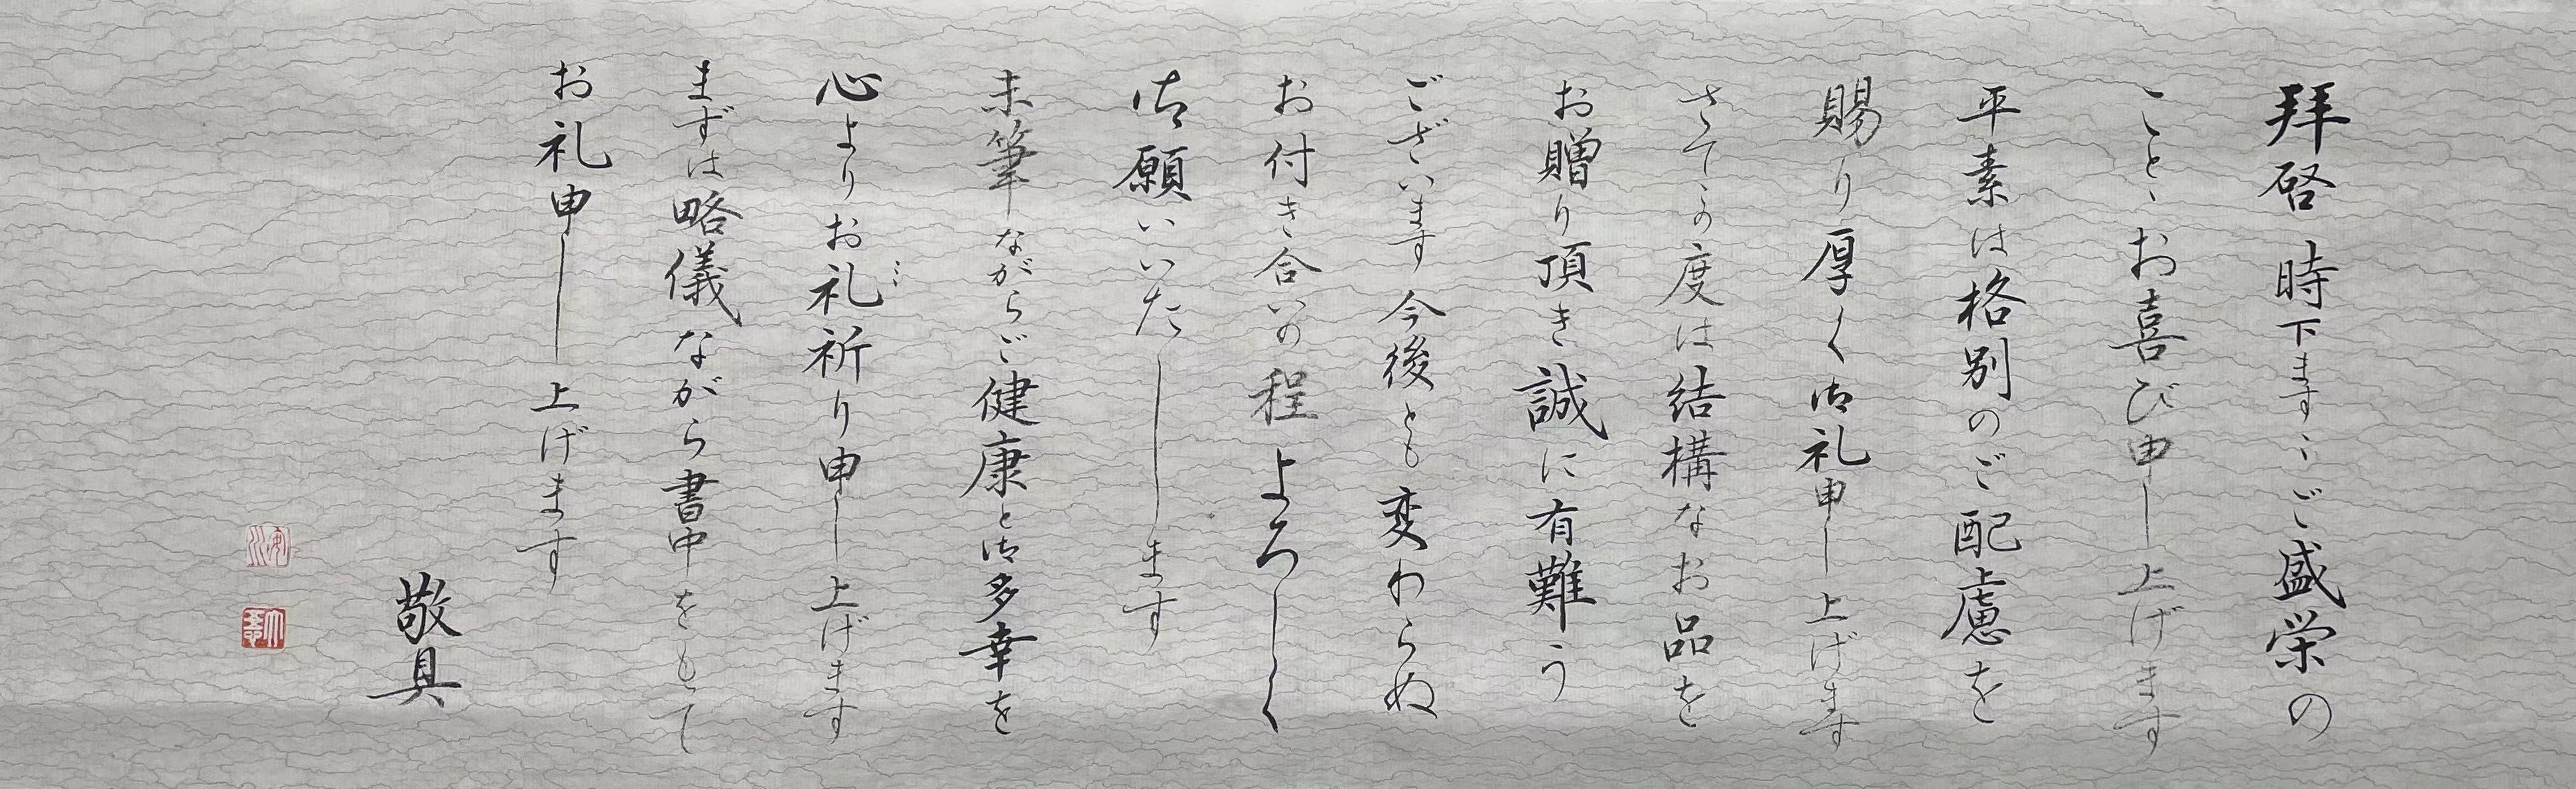 拝啓 時下ますますご盛栄の
こととお喜び申し上げます
平素は格別のご配慮を
賜り厚く御礼申し上げます
さてこの度は結構なお品を
お贈り頂き誠に有難う
ございます 今後とも変わらぬ
お付き合いの程よろしく
御願いいたします
末筆ながらご健康と御多幸を
心よりお礼祈り申し上げます
まずは略儀ながら書中をもって
お礼申し上げます
敬具